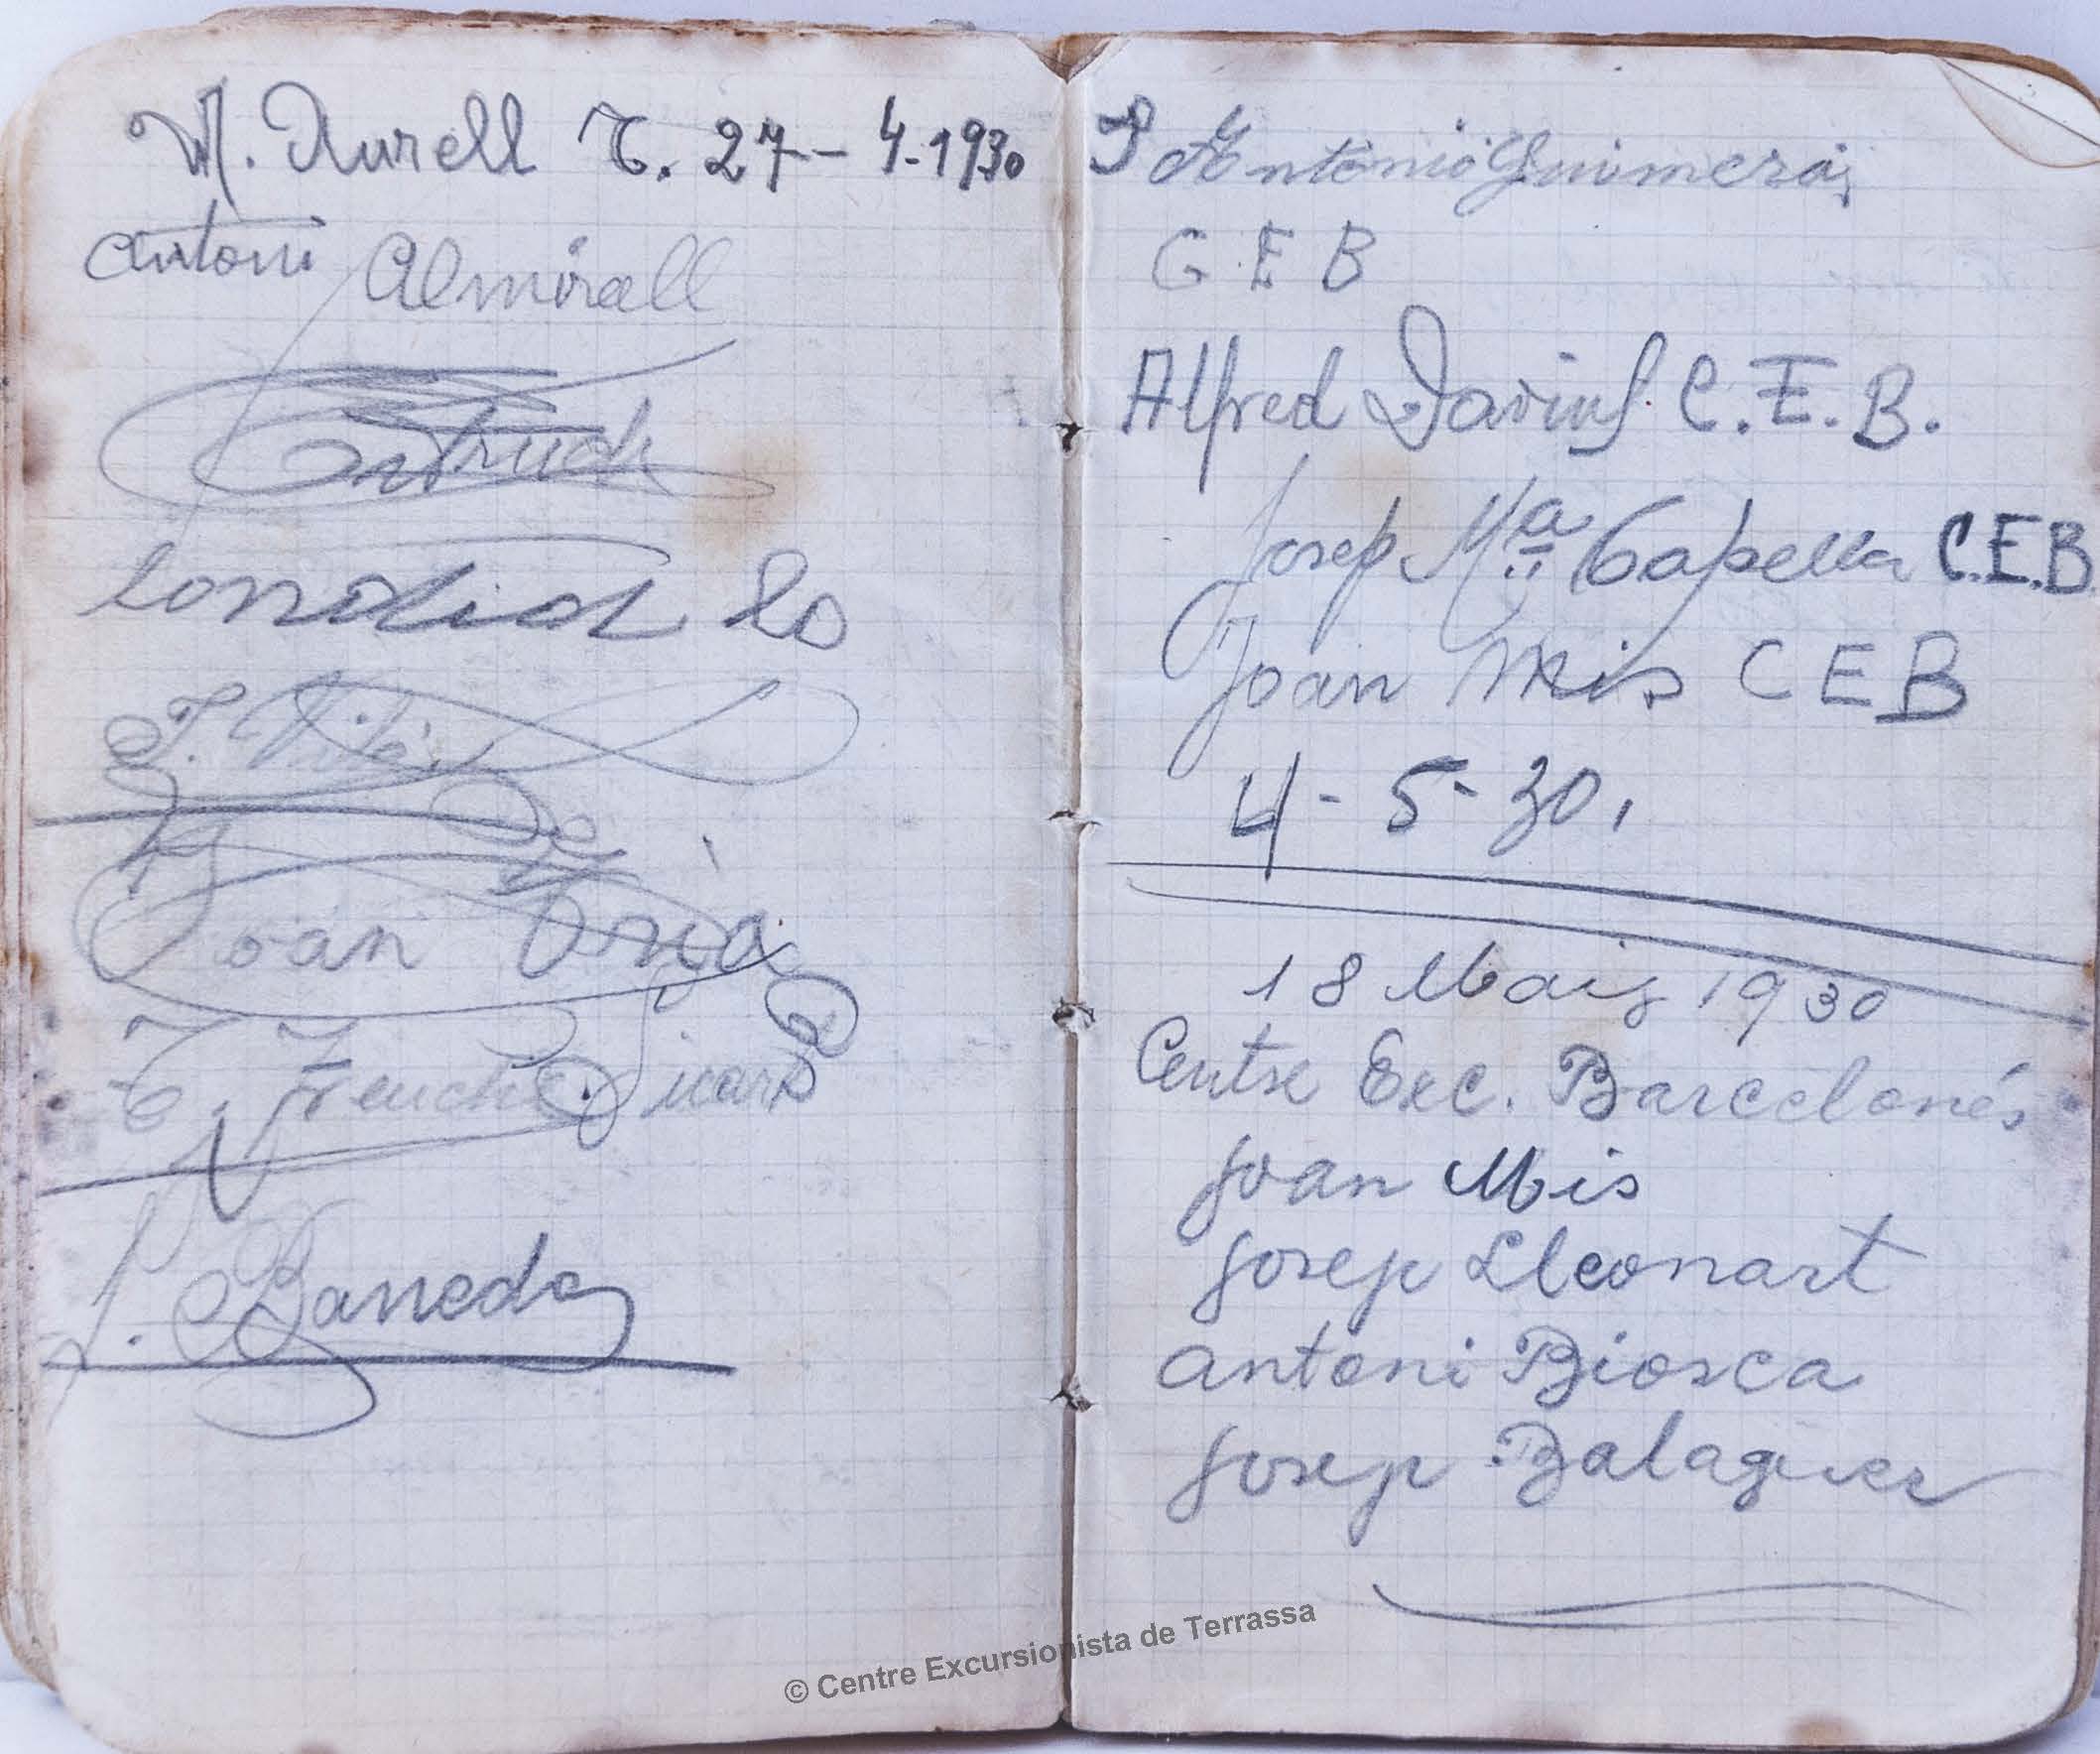 M. Aurell T. 27-4-1930
Antoni Almirall
Estruch
J. Vilá
Joan Oria
J. Baneda
Antonio Guimerà
C E B
Alfred Darius C.E.B.
Josep Mª Capella C.E.B.
Joan Mis C E B
4-5-30.
18 Maig 1930
Centre Exc. Barcelonés
Joan Mis
Josep Lleonart
Antoni Biosca
Josep Balaguer
© Centre Excursionista de Terrassa